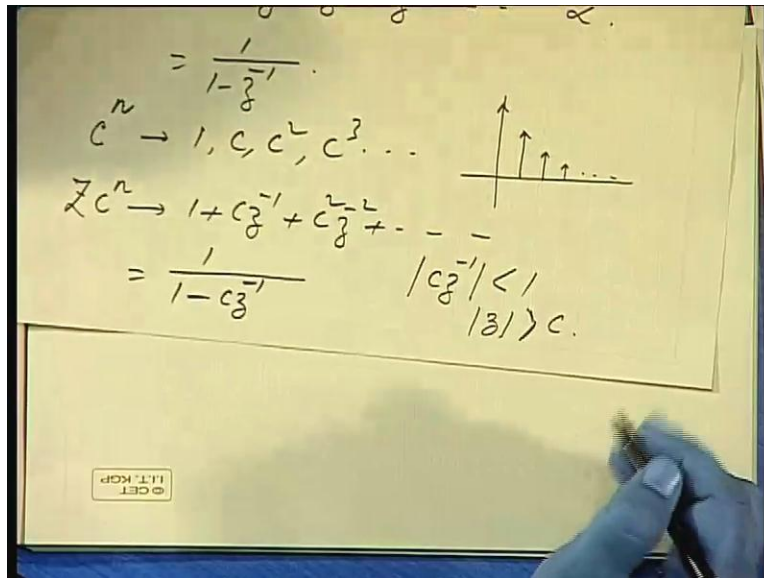 = 1/(1-z⁻¹).
cⁿ → 1, c, c², c³...
Zcⁿ → 1 + cz⁻¹ + c²z⁻² + - - -
= 1/(1-cz⁻¹)
|cz⁻¹| < 1
|z| > c.
© CET
I.I.T. KGP